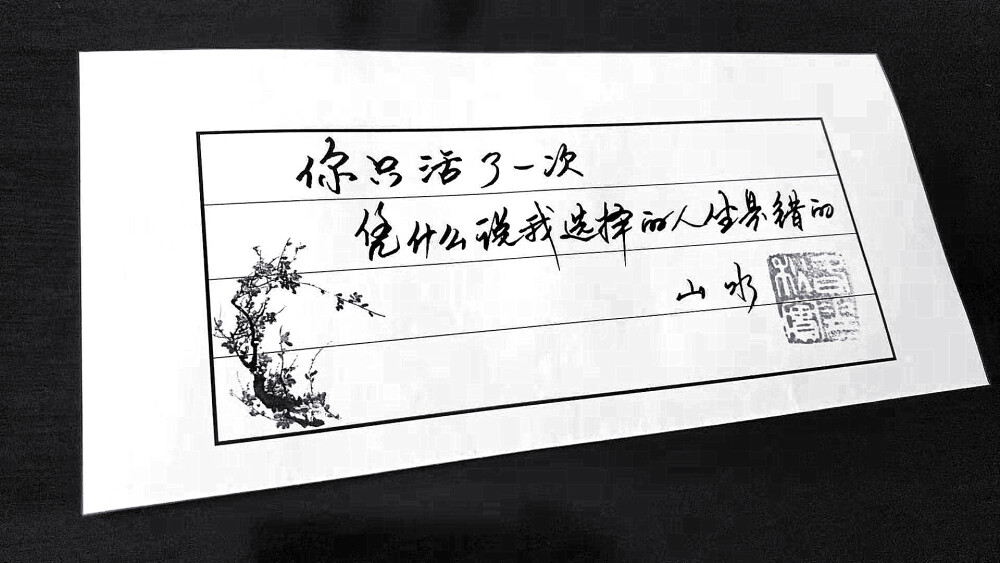 你只活了一次
凭什么说我选择的人生是错的
山水